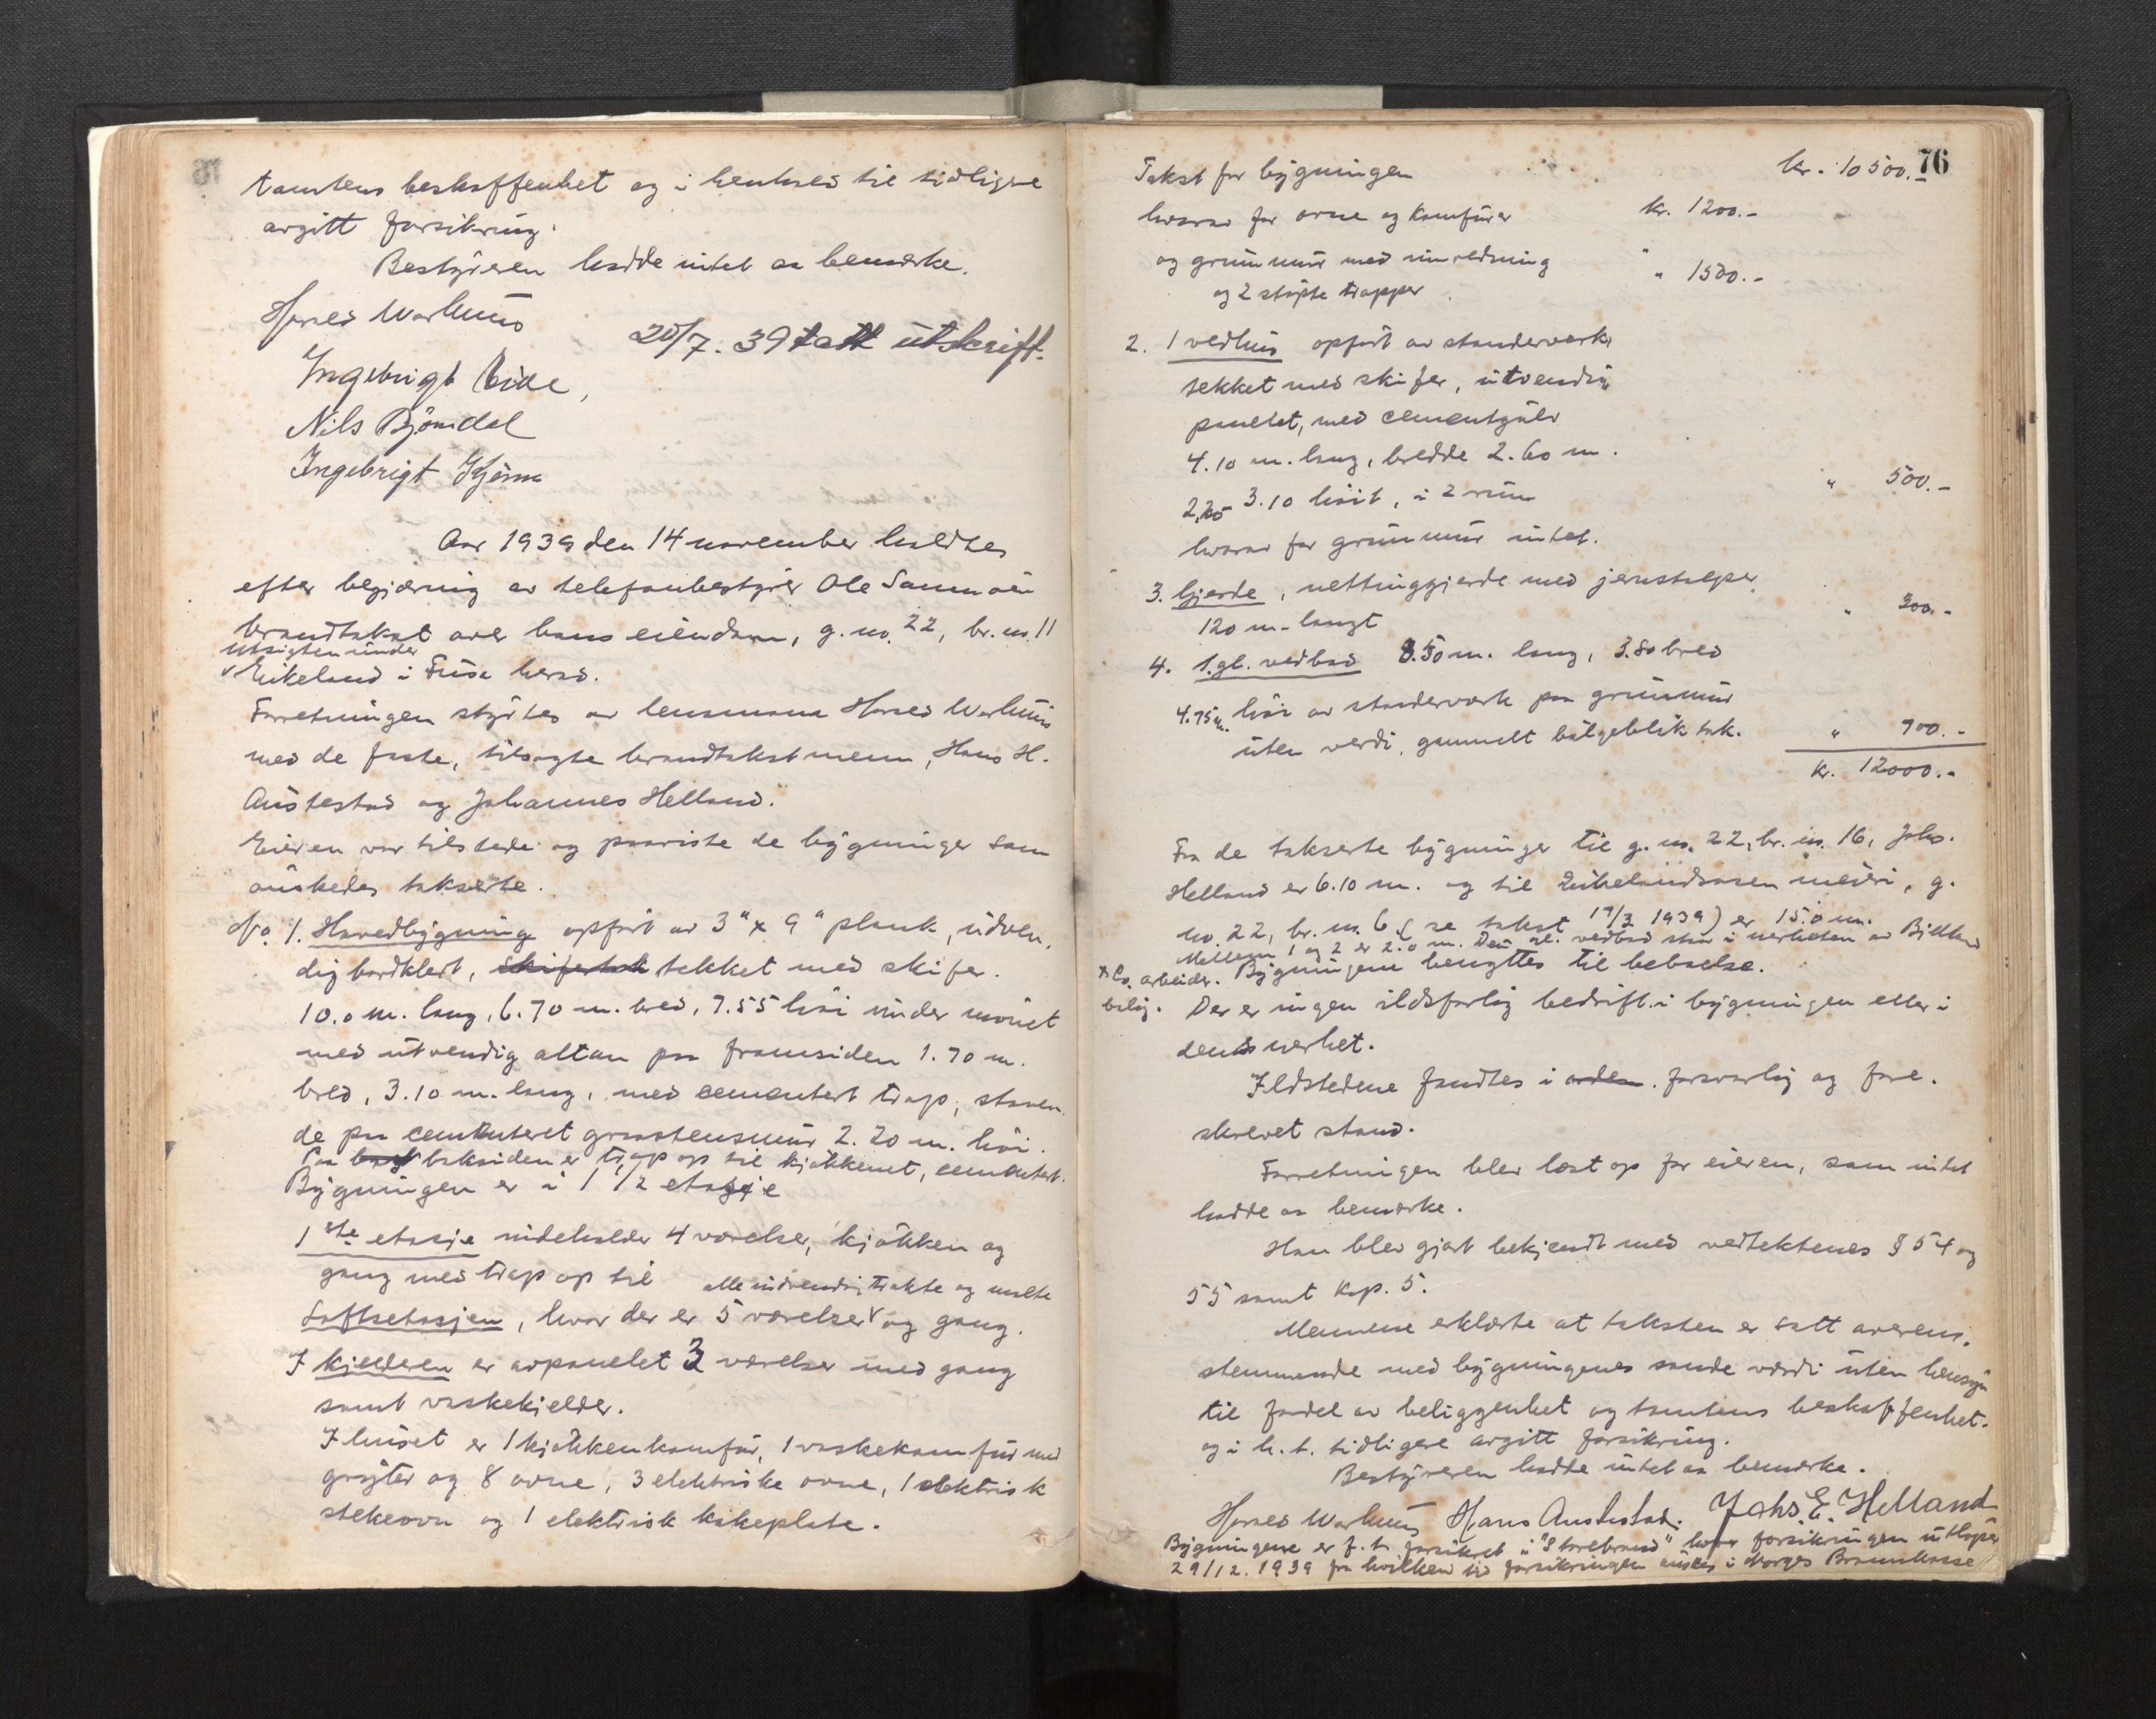 tomtens beskaffenhet og i henhold til tidligere
avgitt forsikring.
Bestyreren hadde intet aa bemerke.
20/7. 39 tatt utskrift.
Ingebrigt Eide,
Nils Björndal
Ingebrigt
Aar 1939 den 14 november holdtes
efter begjæring av telefonbestyrer Ole Samnøen
brandtakst over hans eiendom, g. no. 22, br. no. 11
Utsigten under
v Eikeland i Fusa herad.
Forretningen styrtes av lensmann
med de faste, tilsagte brandtakstmenn, Hans H.
Austestad og Johannes Helland.
Eieren var tilstede og paaviste de bygninger som
ønskedes takserte.
No 1. Hovedbygning opført av 3" x 9" plank, utven-
dig bordklædt, skifertak tekket med skifer.
10.0 m. lang, 6.70 m. bred, 7.55 høi under mønet
med utvendig altan paa framsiden 1.70 m.
bred, 3.10 m. lang, med cementert trap, staaen-
de paa cementeret graastensmur 2.20 m. høi.
Paa baksiden er trap op til kjøkkenet, cementert.
Bygningen er i 1 1/2 etasje
1ste etasje indeholder 4 værelser, kjøkken og
gang med trap op til
alle indvendig trakte og malte
Loftsetasjen, hvor der er 5 værelser v og gang.
I kjelderen er avpanelet 3 værelser med gang
samt vaskekjelder.
I huset er 1 kjøkkenkomfür, 1 vaskekomfür med
gryter og 8 ovne, 3 elektriske ovne, 1 elektrisk
stekeovn og 1 elektrisk kokeplate.
76
Takst for bygningen kr. 10500.-
hvorav for ovne og komfürer kr. 1200.-
og grunnmur med innredning " 1500.-
og 2 støpte trapper
2. 1 vedhus opført av standerverk,
tekket med skifer, utvendig
panelet, med cementgulv
4.10 m. lang, bredde 2.60 m.
3.10 høit, i 2 rum " 500.-
hvorav for grunnmur intet.
3. Gjerde, nettinggjerde med jernstolper
120 m. langt " 300.-
4. 1 gl. vedbod 8.50 m. lang, 3.80 bred
4.75 m. høi av standerverk paa grunnmur
uten verdi, gammelt bølgeblik tak. " 700.-
kr. 12000.-
Fra de takserte bygninger til g. no. 22, br. no. 16, Johs.
Helland er 6.10 m. og til Eikelandsosen meieri, g.
no. 22, br. no. 6 (se takst 17/3 1939) er 15.0 m.
Mellem 1 og 2 er 2.0 m. Den gl. vedbod staar i nerheten av
Bygningene benyttes til beboelse.
Der er ingen ildsfarlig bedrift i bygningen eller i
dens nerhet.
Ildstedene fandtes i orden forsvarlig og fore-
skrevet stand.
Forretningen blev læst op for eieren, som intet
hadde aa bemerke.
Han blev gjort bekjendt med vedtektenes § 54 og
55 samt Kap. 5.
Mennene erklærte at taksten er satt overens-
stemmende med bygningenes sande værdi uten hensyn
til fordel av beliggenhet og tomtens beskaffenhet.
og i h. t. tidligere avgitt forsikring.
Bestyreren hadde intet aa bemerke.
Hans Austestad. Johs. E. Helland
Bygningene er f. t. forsikret i "Storebrand" hvor forsikringen utløper
29/12. 1939 fra hvilken tid forsikringen ønskes i Norges Brannkasse